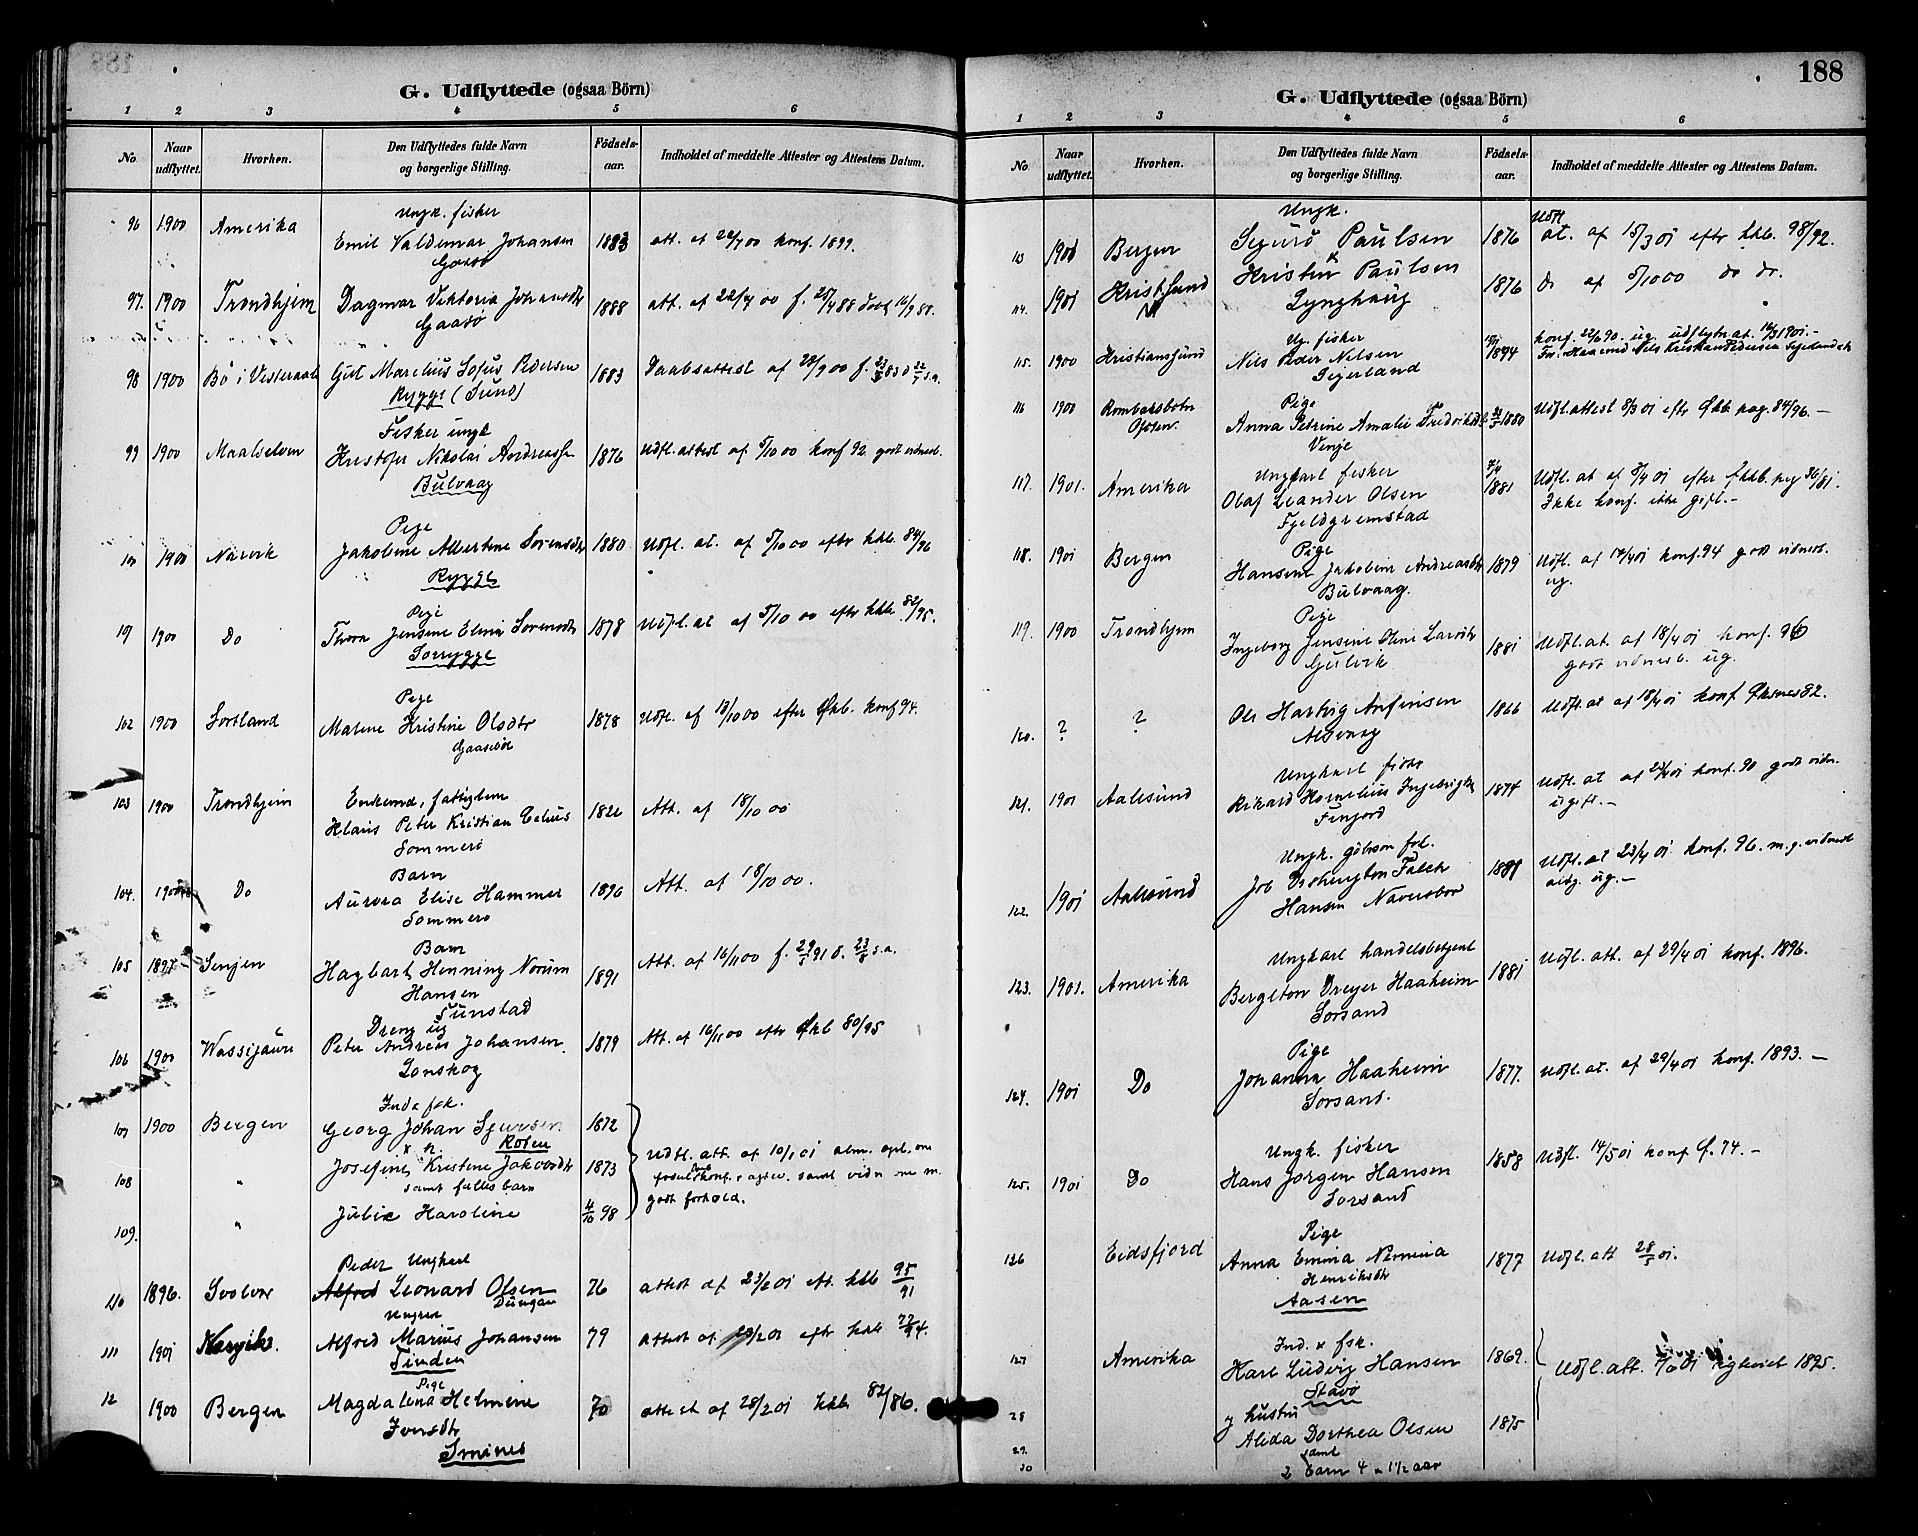 188
G. Udflyttede (ogsaa Börn)
1 2 3 4 5 6
No. Naar udflyttet. Hvorhen. Den Udflyttedes fulde Navn og borgerlige Stilling. Födsels-aar. Indholdet af meddelte Attester og Attestens Datum.
Ungk. fisker
96 1900 Amerika Emil Valdemar Johansen 1883 att. af 22/7 00 konf. 1899.
Gaasö
97. 1900 Trondhjem Dagmar Viktoria Johansdtr 1888 att. af 22/7 00 f.
Gaasö
98 1900 Bö i Vesteraalen Marelius Sofus Pedersen 1883 Daabsattest af
Rygge (Sund)
Fisker ungk
99 1900 Maalselven Kristofer Nikolai Andreassen 1876 Udfl. attest af 5/10 00 konf 92 godt vidnesb.
Bulvaag
Pige
1900 Narvik Jakobine Albertine Sörensdtr 1880 Udfl. at. af 5/10 00 efter kkb. 84/96
Rygge
Pige
1900 Do Thora Jensine Elina Sörensdtr 1878 Udfl. at af 5/10 00 efter kkb 82/95.
Sörrygge
Pige
102 1900 Sortland Malene Kristine Olsdtr 1878 Udfl. af 18/10 00 efter kkb. konf 94.
103 1900 Trondhjem Enkemd, fattiglem
Klaus Peter Kristian Celius 1822 Att. af 18/10 00
Sommerö
Barn
104. 1900 Do Aurora Elise Hammer 1896 Att. af 18/10 00.
Sommerö
Barn
105 1897 Senjen Hagbart Henning Norum 1891 Att. af 16/11 00
Hansen
Tunstad
Dreng ug
106 1900 Wassijaure Peter Andreas Johansen 1879 Att. af 16/11 00 efter kkb 80/95
Lonskog
Inds fsk.
107 1900 Bergen Georg Johan Sjursen 1872
108 " Josefine Kristine Jakobsdtr 1873 Udfl. att. af 10/1 01
samt fælles barn
godt forhold.
109. " Julie Karoline 98
Peder Ungkarl
110 1896. Svolvær Alfred Leonard Olsen 76 attest af 23/2 01 kkb 95/91
Ungkar
111 1901 Narvik. Alfred Marius Johansen 79 attest af 23/2 01 efter kkb
Tinden
Pige
12 1900 Bergen Magdalena Helmine 70 attest af 28/2 01 kkb 82/86.
Jonsdtr
Smines
G. Udflyttede (ogsaa Börn)
1 2 3 4 5 6
No. Naar udflyttet. Hvorhen. Den Udflyttedes fulde Navn og borgerlige Stilling. Födsels-aar. Indholdet af meddelte Attester og Attestens Datum.
Ungk. Udfl
113 1901 Bergen Sigurd Paulsen 1876 at. af 15/3 01 efter kkb. 98/92.
114. 1901 Kristsund N Kristine Paulsen 1876 do af 5/10 00 do do.
Lynghaug
Ug. fisker
115. 1900 Kristiansund Nils Peder Nilsen 1874 konf. 90. ug.
Seierland
Pige
116 1900 Rombaksbotn Anna Petrine Amalie Fredriksdtr 1880 Udfl. attest 8/3 01 efter kkb. pag. 84/96. —
Ofoten. Vinje
Ungkarl fisker
117. 1901. Amerika Olaf Leander Olsen 1881 Udfl. at af 9/4 01 efter kkb. pag 36/81.
Fjeldgremstad Ikke konf. ikke gift. —
Pige
118. 1901 Bergen Hansine Jakobine Andreasdtr 1879 Udfl. af 17/4 01 konf. 94 godt vidnesb.
Bulvaag. ug.
Pige
119. 1900 Trondhjem Ingeborg Jensine Oline Larsdtr 1881 Udfl. at. af 18/4 01 konf. 96
Gulvik godt vidnesb. ug.
120. ? ? Ole Hartvig Anfinsen 1866 Udfl. at af 18/4 01 konf. Öksnes 82.
Alsvaag
Ungkarl fisker
121. 1901 Aalesund Rikard Kornelius Ingebrigts 1874 Udfl. at af konf. 90 godt vidn.
Finjord ugift. —
Ungk.
122. 1901 Aalesund Job Falch Udfl. at 23/4 01 konf. 96. m. g. vidnesb
Hansen ug. —
Ungkarl handelsbetjent
123. 1901. Amerika Bergiton Dreyer Haaheim 1881 Udfl. att. af 29/4 01 konf. 1896.
Sorsand
Pige
124. 1901 Do Johanna Haaheim 1877. Udfl. at. af 29/4 01 konf. 1893. —
Sorsand.
Ungk. fisker
125. 1901 Do Hans Jörgen Hansen 1858 Udfl. 14/5 01 konf 74. —
Sorsand
Pige
126 Eidsfjord Anna Emma Nemina 1877 Udfl. att 28/5 01.
Henriksdtr
Aasen
Ind. & fsk.
127 Amerika Karl Ludvig Hansen 1869. Udfl. att. 1895.
Stavö
28 hustru
Alida Dorthea Olsen 1875
29. samt
30 2 barn 4 & 1 1/2 aar